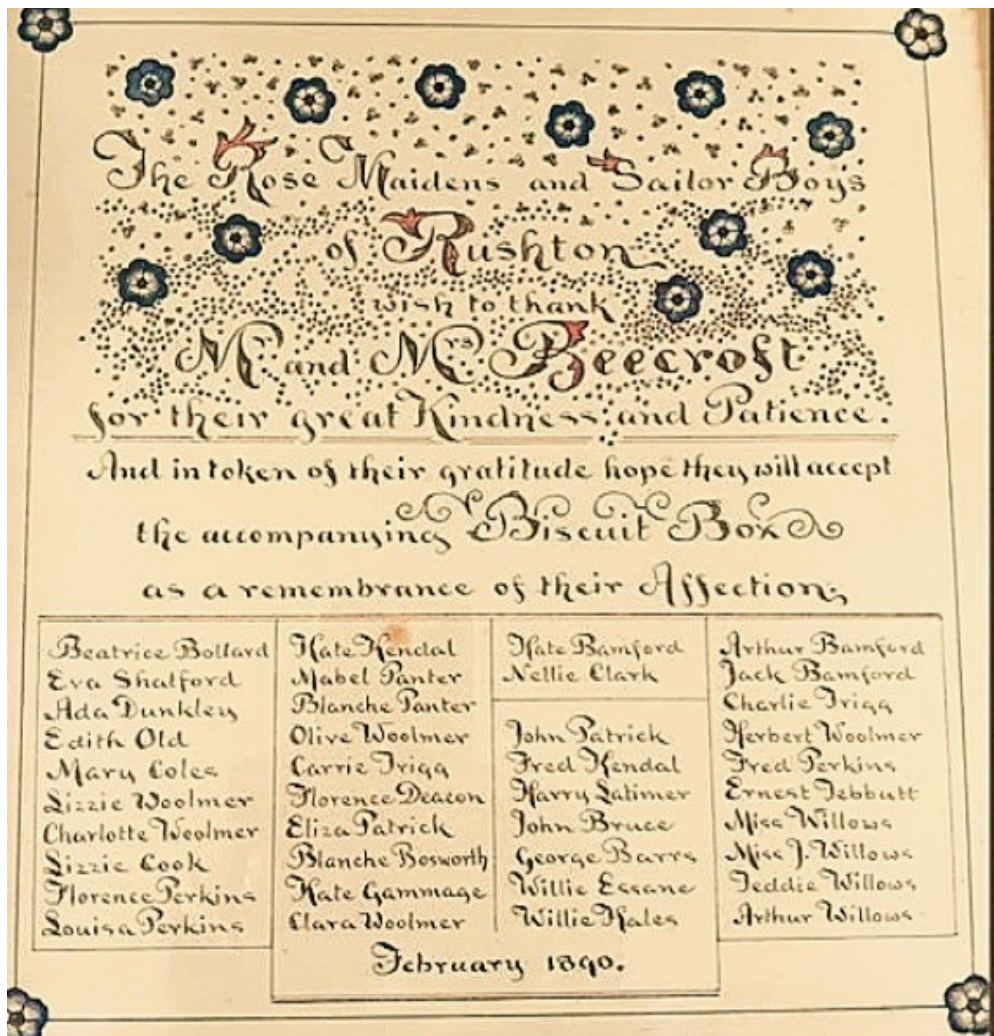 The Rose Maidens and Sailor Boys
of Rushton
wish to thank
Mr and Mrs Beecroft
for their great Kindness and Patience.
And in token of their gratitude hope they will accept
the accompanying Biscuit Box
as a remembrance of their Affection,
Beatrice Bollard
Eva Shatford
Ada Dunkley
Edith Old
Mary Coles
Lizzie Woolmer
Charlotte Woolmer
Lizzie Cook
Florence Perkins
Louisa Perkins
Kate Kendal
Mabel Panter
Blanche Panter
Olive Woolmer
Carrie Trigg
Florence Deacon
Eliza Patrick
Blanche Bosworth
Kate Gammage
Clara Woolmer
Kate Bamford
Nellie Clark
John Patrick
Fred Kendal
Harry Latimer
John Bruce
George Barrs
Willie Essane
Willie Kales
Arthur Bamford
Jack Bamford
Charlie Trigg
Herbert Woolmer
Fred Perkins
Ernest Tebbutt
Miss Willows
Miss J. Willows
Teddie Willows
Arthur Willows
February 1890.